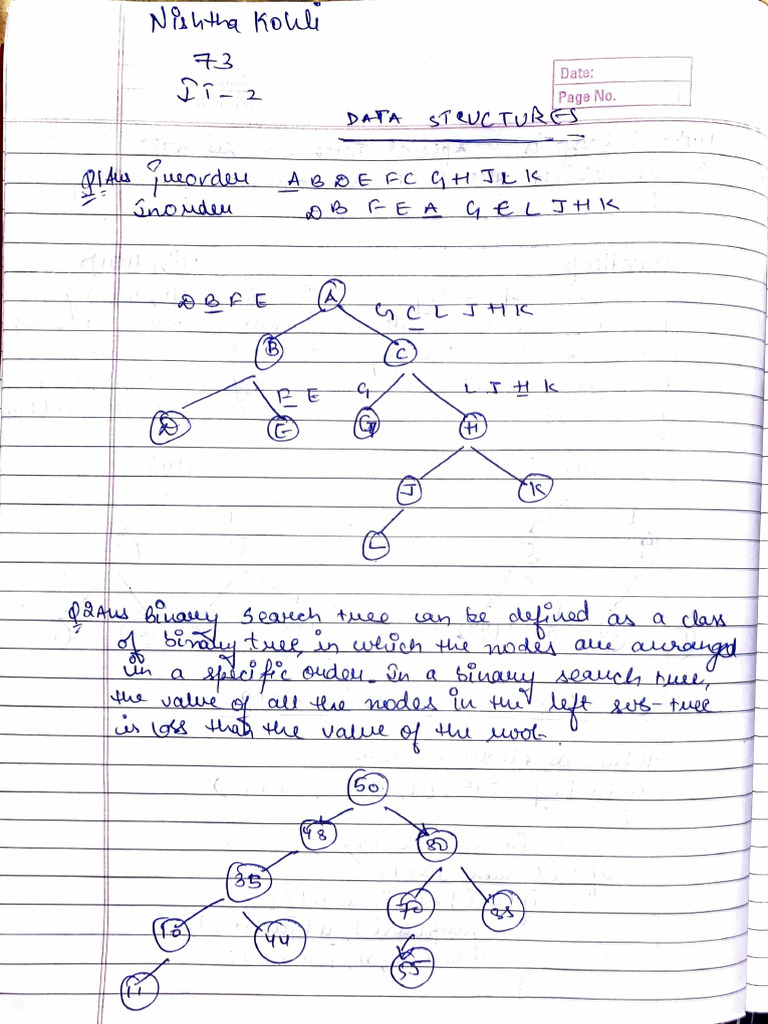 Nishtha Kohli
73
IT-2
Date:
Page No.
DATA STRUCTURES
Q1 Ans Preorder A B D E F C G H J L K
Inorder D B F E A G C L J H K
D B F E A G C L J H K
B C
F E G L J H K
D E G H
J K
L
Q2 Ans Binary Search tree can be defined as a class
of binary tree, in which the nodes are arranged
in a specific order. In a binary search tree,
the value of all the nodes in the left sub-tree
is less than the value of the root.
50
48 80
35
70 88
10 44
55
11